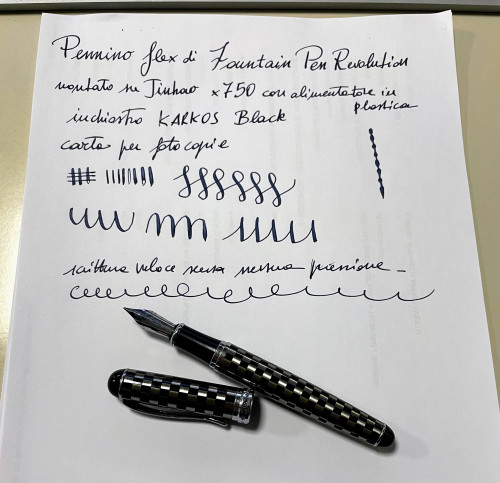 Pennino flex di Fountain Pen Revolution
montato su Jinhao x750 con alimentatore in
plastica
inchiostro KARKOS Black
carta per fotocopie
scrittura veloce senza nessuna pressione -